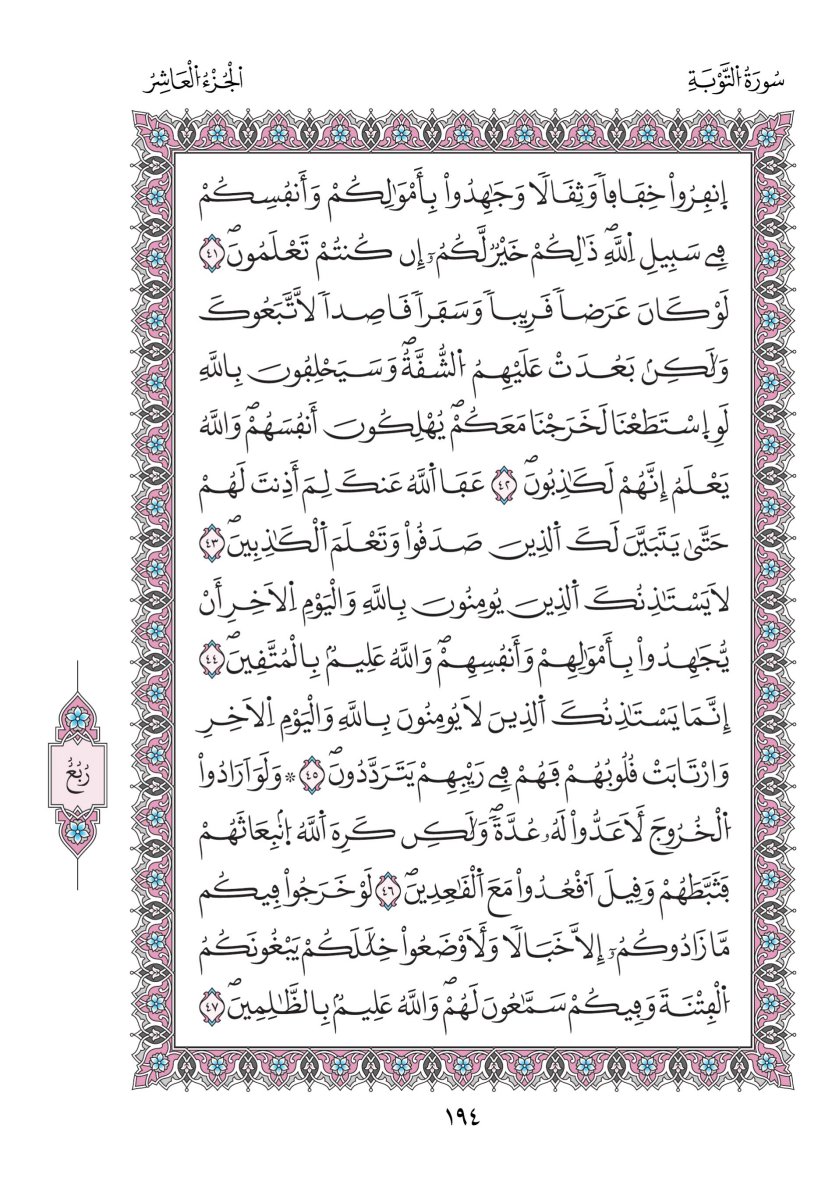 سُورَةُ التَّوْبَةِ
الْجُزْءُ الْعَاشِرُ
اِنفِرُواْ خِفَافاٗ وَثِقَالٗا وَجَٰهِدُواْ بِأَمْوَٰلِكُمْ وَأَنفُسِكُمْ
فِے سَبِيلِ اِ۬للَّهِۖ ذَٰلِكُمْ خَيْرٞ لَّكُمُۥٓ إِن كُنتُمْ تَعْلَمُونَۖ ٤١
لَوْ كَانَ عَرَضاٗ قَرِيباٗ وَسَفَراٗ قَاصِداٗ لَّاتَّبَعُوكَ
وَلَٰكِنۢ بَعُدَتْ عَلَيْهِمُ اُ۬لشُّقَّةُۖ وَسَيَحْلِفُونَ بِاللَّهِ
لَوِ اِ۪سْتَطَعْنَا لَخَرَجْنَا مَعَكُمْۖ يُهْلِكُونَ أَنفُسَهُمْۖ وَاللَّهُ
يَعْلَمُ إِنَّهُمْ لَكَٰذِبُونَۖ ٤٢ عَفَا اَ۬للَّهُ عَنكَ لِمَ أَذِنتَ لَهُمْ
حَتَّىٰ يَتَبَيَّنَ لَكَ اَ۬لذِينَ صَدَقُواْ وَتَعْلَمَ اَ۬لْكَٰذِبِينَۖ ٤٣
لَا يَسْتَٰذِنُكَ اَ۬لذِينَ يُومِنُونَ بِاللَّهِ وَالْيَوْمِ اِ۬لَاخِرِ أَنْ
يُّجَٰهِدُواْ بِأَمْوَٰلِهِمْ وَأَنفُسِهِمْۖ وَاللَّهُ عَلِيمُۢ بِالْمُتَّقِينَۖ ٤٤
إِنَّمَا يَسْتَٰذِنُكَ اَ۬لذِينَ لَا يُومِنُونَ بِاللَّهِ وَالْيَوْمِ اِ۬لَاخِرِ
وَارْتَابَتْ قُلُوبُهُمْ فَهُمْ فِے رَيْبِهِمْ يَتَرَدَّدُونَۖ ٤٥ ۞ وَلَوَ اَرَادُواْ
اُ۬لْخُرُوجَ لَأَعَدُّواْ لَهُۥ عُدَّةٗۖ وَلَٰكِن كَرِهَ اَ۬للَّهُ اُ۪نۢبِعَاثَهُمْ
فَثَبَّطَهُمْ وَقِيلَ اَ۟قْعُدُواْ مَعَ اَ۬لْقَٰعِدِينَۖ ٤٦ لَوْ خَرَجُواْ فِيكُم
مَّا زَادُوكُمُۥٓ إِلَّا خَبَالٗا وَلَأَوْضَعُواْ خِلَٰلَكُمْ يَبْغُونَكُمُ
اُ۬لْفِتْنَةَ وَفِيكُمْ سَمَّٰعُونَ لَهُمْۖ وَاللَّهُ عَلِيمُۢ بِالظَّٰلِمِينَۖ ٤٧
رُبُعُ
١٩٤